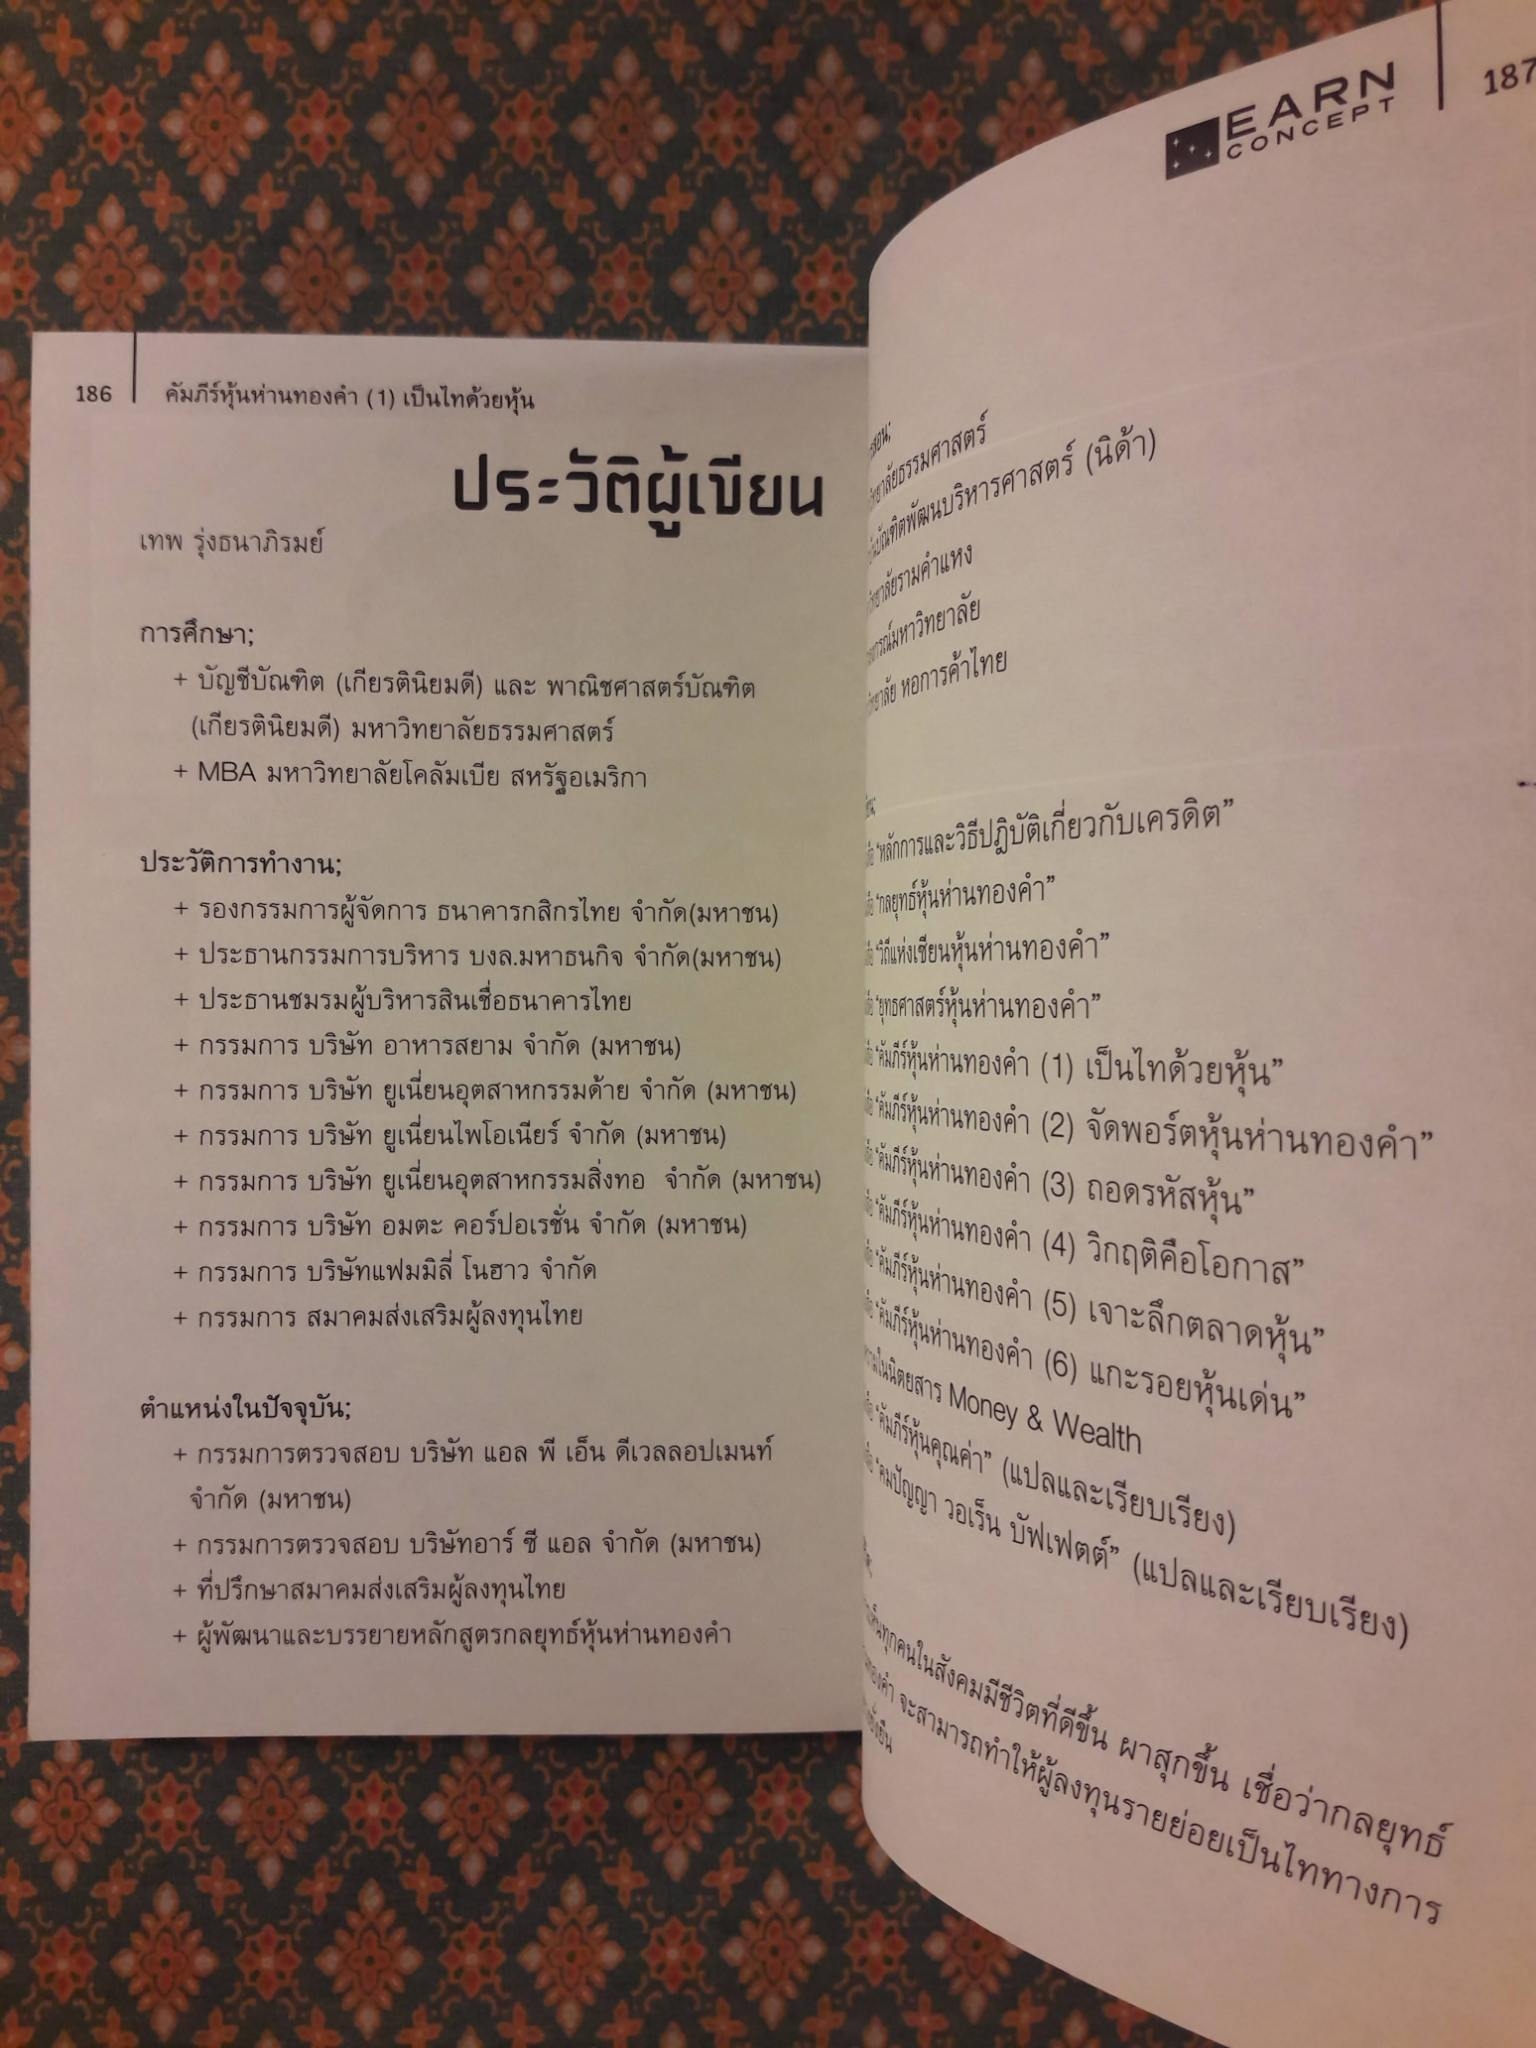 186
คัมภีร์หุ้นห่านทองคำ (1) เป็นไทด้วยหุ้น
ประวัติผู้เขียน
เทพ รุ่งธนาภิรมย์
การศึกษา;
+ บัญชีบัณฑิต (เกียรตินิยมดี) และ พาณิชศาสตร์บัณฑิต
(เกียรตินิยมดี) มหาวิทยาลัยธรรมศาสตร์
+ MBA มหาวิทยาลัยโคลัมเบีย สหรัฐอเมริกา
ประวัติการทำงาน;
+ รองกรรมการผู้จัดการ ธนาคารกสิกรไทย จำกัด(มหาชน)
+ ประธานกรรมการบริหาร บงล.มหาธนกิจ จำกัด(มหาชน)
+ ประธานชมรมผู้บริหารสินเชื่อธนาคารไทย
+ กรรมการ บริษัท อาหารสยาม จำกัด (มหาชน)
+ กรรมการ บริษัท ยูเนี่ยนอุตสาหกรรมด้าย จำกัด (มหาชน)
+ กรรมการ บริษัท ยูเนี่ยนไพโอเนียร์ จำกัด (มหาชน)
+ กรรมการ บริษัท ยูเนี่ยนอุตสาหกรรมสิ่งทอ จำกัด (มหาชน)
+ กรรมการ บริษัท อมตะ คอร์ปอเรชั่น จำกัด (มหาชน)
+ กรรมการ บริษัทแฟมมิลี่ โนฮาว จำกัด
+ กรรมการ สมาคมส่งเสริมผู้ลงทุนไทย
ตำแหน่งในปัจจุบัน;
+ กรรมการตรวจสอบ บริษัท แอล พี เอ็น ดีเวลลอปเมนท์
จำกัด (มหาชน)
+ กรรมการตรวจสอบ บริษัทอาร์ ซี แอล จำกัด (มหาชน)
+ ที่ปรึกษาสมาคมส่งเสริมผู้ลงทุนไทย
+ ผู้พัฒนาและบรรยายหลักสูตรกลยุทธ์หุ้นห่านทองคำ
EARN
CONCEPT
187
ธรรมศาสตร์
บัณฑิตพัฒนบริหารศาสตร์ (นิด้า)
รามคำแหง
มหาวิทยาลัย
หอการค้าไทย
“หลักการและวิธีปฏิบัติเกี่ยวกับเครดิต”
“กลยุทธ์หุ้นห่านทองคำ”
“วิถีแห่งเซียนหุ้นห่านทองคำ”
“ยุทธศาสตร์หุ้นห่านทองคำ”
“คัมภีร์หุ้นห่านทองคำ (1) เป็นไทด้วยหุ้น”
“คัมภีร์หุ้นห่านทองคำ (2) จัดพอร์ตหุ้นห่านทองคำ”
“คัมภีร์หุ้นห่านทองคำ (3) ถอดรหัสหุ้น”
“คัมภีร์หุ้นห่านทองคำ (4) วิกฤติคือโอกาส”
“คัมภีร์หุ้นห่านทองคำ (5) เจาะลึกตลาดหุ้น”
“คัมภีร์หุ้นห่านทองคำ (6) แกะรอยหุ้นเด่น”
ในนิตยสาร Money & Wealth
“คัมภีร์หุ้นคุณค่า” (แปลและเรียบเรียง)
“คมปัญญา วอเร็น บัฟเฟตต์” (แปลและเรียบเรียง)
ทุกคนในสังคมมีชีวิตที่ดีขึ้น ผาสุกขึ้น เชื่อว่ากลยุทธ์
จะสามารถทำให้ผู้ลงทุนรายย่อยเป็นไททางการ